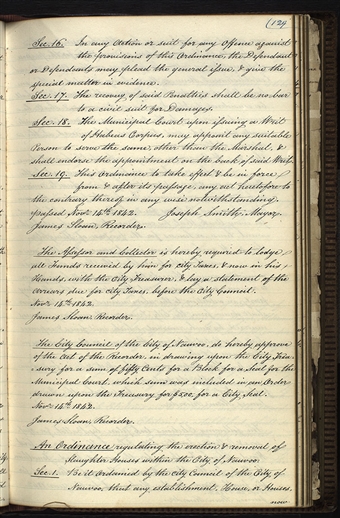 (129
Sec. 16. In any Action or suit for any Offence against
the provisions of this Ordinance, the Defendant
or Defendants may plead the general issue, & give the
special matter in evidence.
Sec. 17. The recovery of said Penalties shall be no bar
to a civil suit for Damages.
Sec. 18. The Municipal Court upon issuing a Writ
of Habeus Corpus, may appoint any suitable
Person to serve the same, other than the Marshal, &
shall endorse the appointment on the back of said Writ.
Sec. 19. This Ordinance to take effect & be in force
from & after its passage, any act heretofore to
the contrary thereof in any wise notwithstanding.
passed Nov. 14th 1842. Joseph Smith, Mayor.
James Sloan, Recorder.
The Assessor and Collector is hereby required to lodge
all Funds received by him for City Taxes, & now in his
Hands, with the City Treasurer, & lay a statement of the
arrears due for City Taxes, before the City Council.
Novr 14th 1842.
James Sloan Recorder.
The City Council of the City of Nauvoo, do hereby approve
of the Act of the Recorder, in drawing upon the City Trea-
sury for a sum of fifty Cents for a Block for a Seal for the
Municipal Court, which sum was included in an Order
drawn upon the Treasury for $5.00, for a City Seal.
Novr 14th 1842.
James Sloan, Recorder.
An Ordinance regulating the erection & removal of
Slaughter Houses within the City of Nauvoo.
Sec. 1. Be it Ordained by the City Council of the City of
Nauvoo, that any establishment, House, or Houses,
now